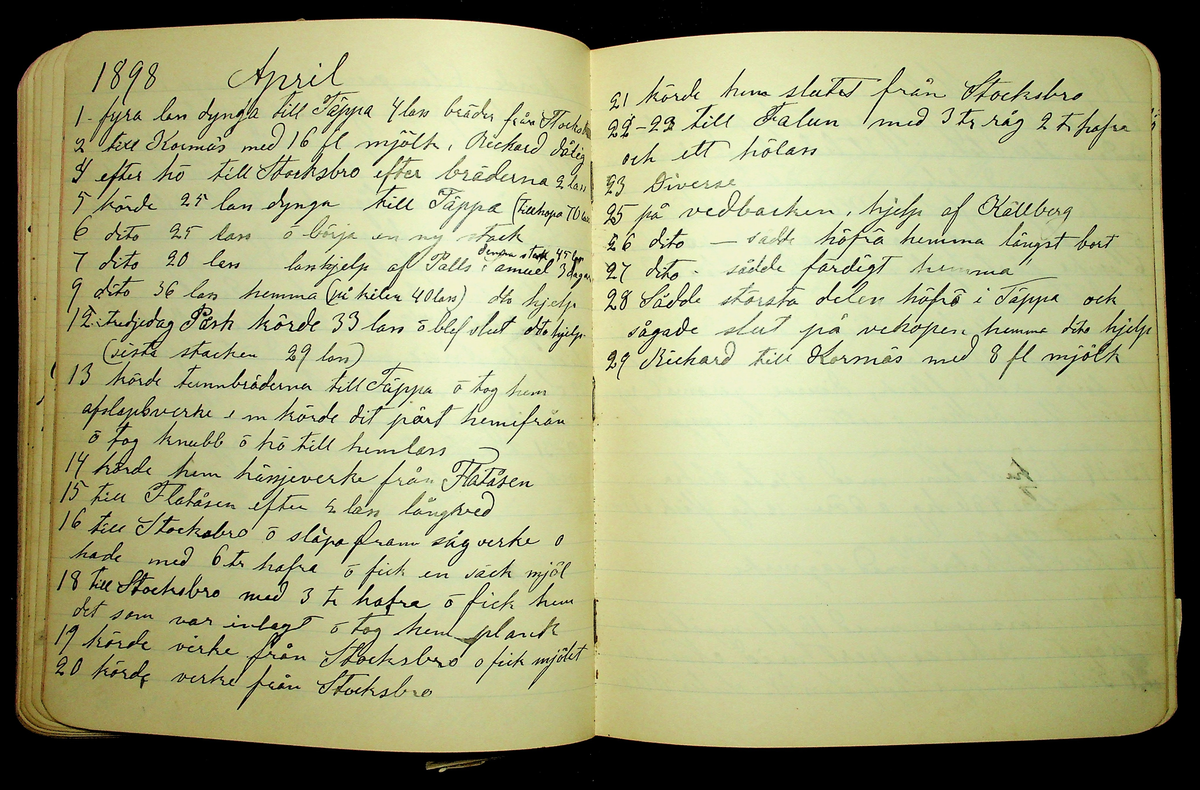 1898 April
1 fyra las dynga till Täppa 4 lass bräder från Stocksbro
2 till Kormäs med 16 fl mjölk, Rickard dålig
4 efter hö till Stocksbro efter bräderna 2 lass
5 körde 25 las dynga till Täppa (tillhopa 70 lass
6 dito 25 lass ö börja en ny stack
denna stack 45 lass
7 dito 20 lass lasshjelp af Palls samuel 3 dagar
9 dito 36 lass hemma (på kilen 40 lass) dto hjelp
12 tredjedag Påsk körde 33 lass ö blef slut dito hjelp
(sista stacken 29 lass)
13 körde tunnbräderna till Täppa ö tog hem
m körde dit hemifrån
ö tog knubb ö hö till hemlass
14 körde hem hässjeverke från Flatåsen
15 till Flatåsen efter 2 lass långved
16 till Stocksbro ö släpa fram sågverke o
hade med 6 tr hafra ö fick en säck mjöl
18 till Stocksbro med 3 tr hafra ö fick hem
det som var inlagt ö tog hem planck
19 körde virke från Stocksbro o fick mjölet
20 körde virke från Stocksbro
21 körde hem slutet från Stocksbro
22-23 till Falun med 3 tr råg 2 tr hafra
och ett hölass
23 Diverse
25 på vedbacken, hjelp af Källberg
26 dito — sådde höfrö hemma längst bort
27 dito - sådde färdigt hemma
28 Sådde största delen höfrö i Täppa och
sågade slut på vehopen hemma dito hjelp
29 Rickard till Kormäs med 8 fl mjölk